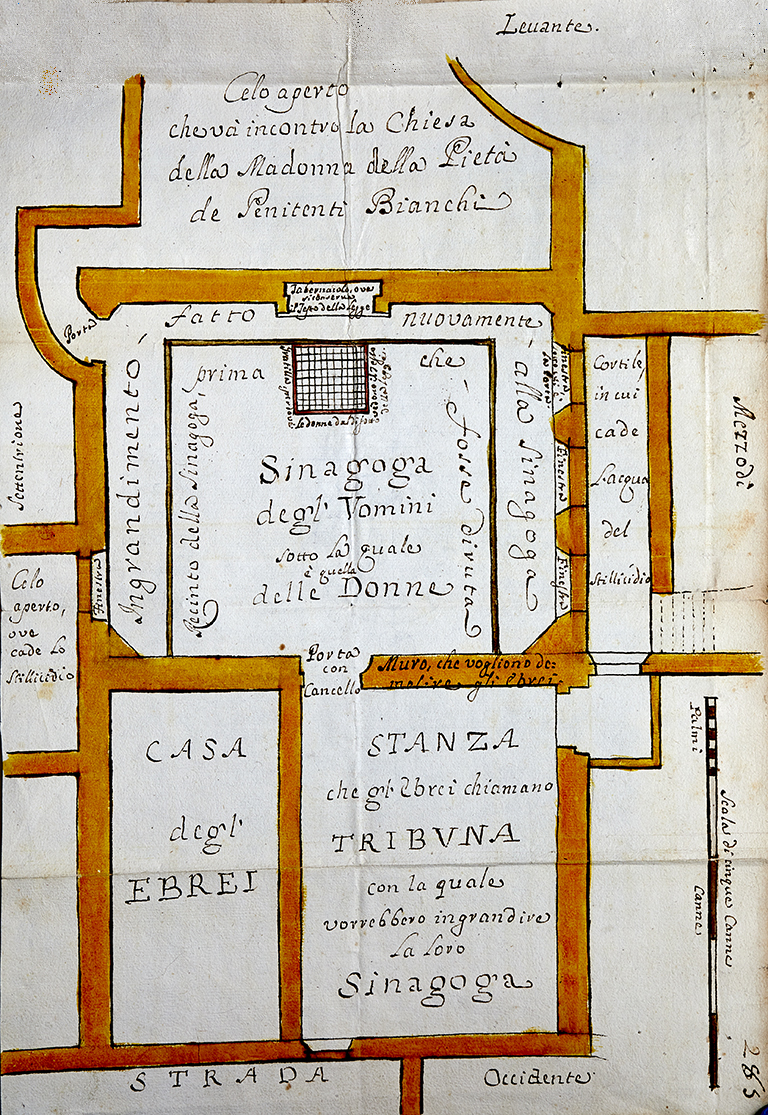 Levante.
Celo aperto
che và incontro la Chiesa
della Madonna della Pietà
de Penitenti Bianchi
Tabernacolo, ove
si conserva
il Testo della Legge
Porta
fatto nuovamente
alla Sinagoga
Ingrandimento
prima che
fosse divuta
Recinto della Sinagoga,
Le donne
della Legge
Sinagoga
degl' Vomini
sotto la quale
è quella
delle Donne
Finestra
Finestra
Finestra
Finestra
Cortile,
in cui
cade
l'acqua
del
stillicidio
Mezzodì
Settentrione
Celo
aperto,
ove
cade lo
stillicidio
Porta
con
Cancello
Muro, che vogliono de=
molire gli Ebrei
CASA
degl'
EBREI
STANZA
che gl' Ebrei chiamano
TRIBVNA
con la quale
vorrebbero ingrandire
la loro
Sinagoga
Palmi
Canne
Scala di cinque Canne
STRADA
Occidente
283